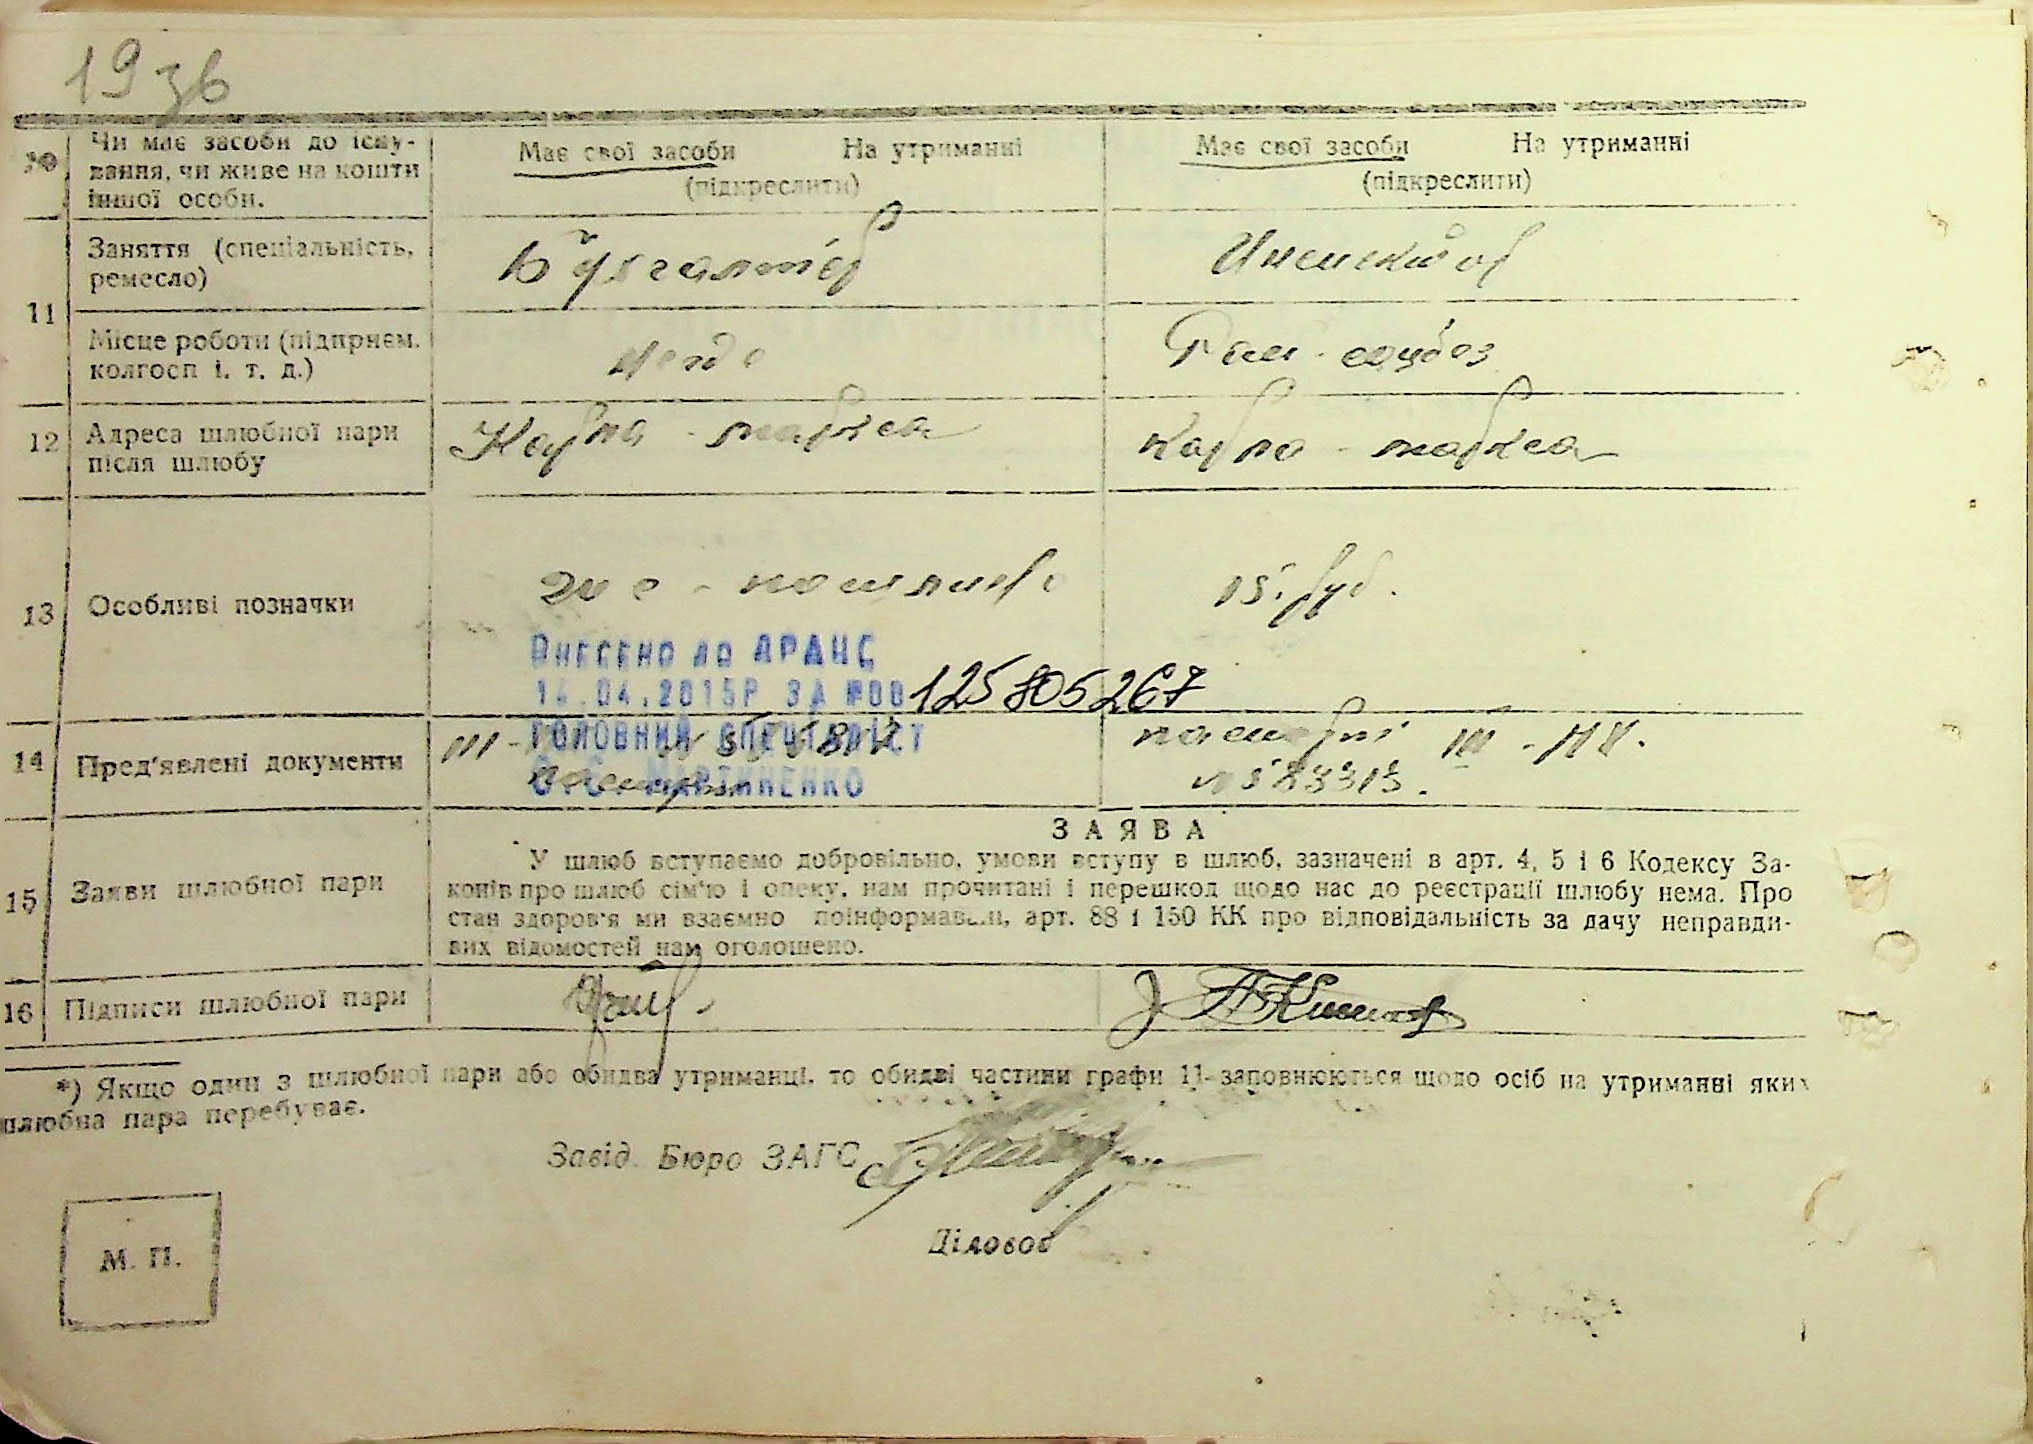 19 зв
10 Чи має засоби до існу-
вання, чи живе на кошти
іншої особи.
Має свої засоби На утриманні
(підкреслити)
Має свої засоби На утриманні
(підкреслити)
11 Заняття (спеціальність,
ремесло)
Бухгалтер
Инспектор
Місце роботи (підприєм.
колгосп і. т. д.)
12 Адреса шлюбної пари
після шлюбу
Карла - маркса
Карла - маркса
13 Особливі позначки
15. руб.
Внесено до ДРАЦС
.04.2015р за №00125805267
Головний спеціаліст
Мартиненко
14 Пред'явлені документи
III -
паспорт III - МК.
№ 583313.
15 Заяви шлюбної пари
ЗАЯВА
У шлюб вступаємо добровільно, умови вступу в шлюб, зазначені в арт. 4, 5 і 6 Кодексу За-
конів про шлюб сім'ю і опеку, нам прочитані і перешкод щодо нас до реєстрації шлюбу нема. Про
стан здоров'я ми взаємно поінформовані, арт. 88 і 150 КК про відповідальність за дачу неправди-
вих відомостей нам оголошено.
16 Підписи шлюбної пари
*) Якщо один з шлюбної пари або обидва утриманці, то обидві частини графи 11 заповнюються щодо осіб на утриманні яких
шлюбна пара перебуває.
Завід. Бюро ЗАГС
Діловод
М. П.